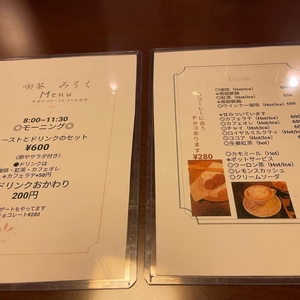 喫茶 みろく
Menu
8:00~11:30
◎モーニング◎
ーストとドリンクのセット
¥600
(卵やサラダ付き)
●ドリンクは
珈琲・紅茶・カフェオレ
★カフェラテ+50円
ドリンクおかわり
200円
ザートもやってます
ョコレート¥280
◎コーヒーに合う
チョコあります
¥280
◎珈琲 (Hot/Ice)
◎紅茶 (Hot/Ice)
◎ウィンナー珈琲 (Hot/Ice)
★甘みついています
◎カフェラテ (Hot/Ice)
◎カフェオレ (Hot/Ice)
◎チャイ (Hot/Ice)
◎ロイヤルミルクティ
◎ココア (Hot/Ice)
◎生姜紅茶 (Hot)
◎カモミール (Hot)
★ポットサービス
◎ウーロン茶 (Hot/Ice)
◎レモンスカッシュ
◎クリームソーダ